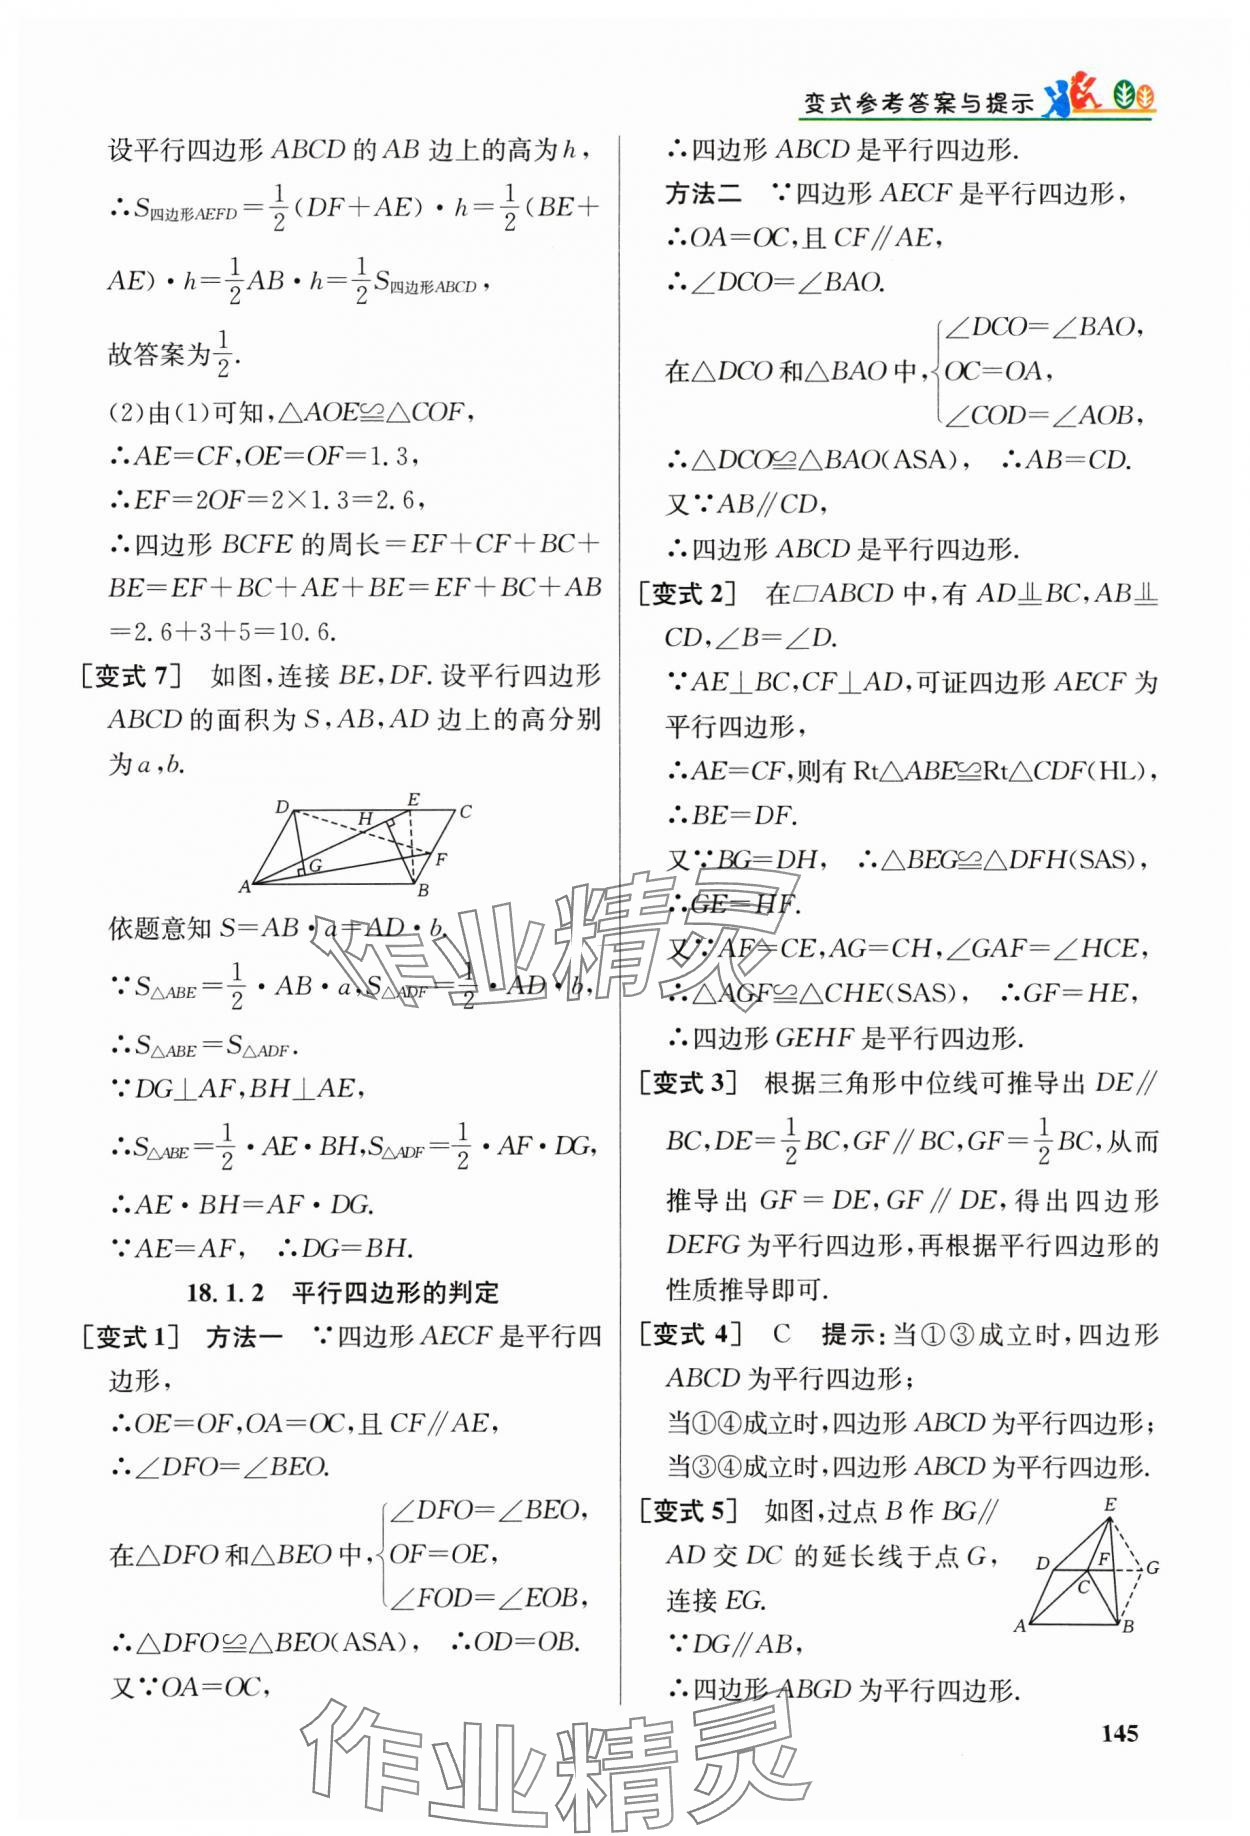 变式参考答案与提示
设平行四边形 ABCD 的 AB 边上的高为 h,
∴S四边形AEFD=1/2(DF+AE)·h=1/2(BE+
AE)·h=1/2AB·h=1/2S四边形ABCD,
故答案为1/2.
(2)由(1)可知,△AOE≌△COF,
∴AE=CF,OE=OF=1.3,
∴EF=2OF=2×1.3=2.6,
∴四边形 BCFE 的周长=EF+CF+BC+
BE=EF+BC+AE+BE=EF+BC+AB
=2.6+3+5=10.6.
[变式 7] 如图,连接 BE,DF.设平行四边形
ABCD 的面积为 S,AB,AD 边上的高分别
为 a,b.
D E C
H
G F
A B
依题意知 S=AB·a=AD·b.
∵S△ABE=1/2·AB·a,S△ADF=1/2·AD·b,
∴S△ABE=S△ADF.
∵DG⊥AF,BH⊥AE,
∴S△ABE=1/2·AE·BH,S△ADF=1/2·AF·DG,
∴AE·BH=AF·DG.
∵AE=AF, ∴DG=BH.
18.1.2 平行四边形的判定
[变式 1] 方法一 ∵四边形 AECF 是平行四
边形,
∴OE=OF,OA=OC,且 CF∥AE,
∴∠DFO=∠BEO.
在△DFO 和△BEO 中,{∠DFO=∠BEO,
OF=OE,
∠FOD=∠EOB,
∴△DFO≌△BEO(ASA), ∴OD=OB.
又∵OA=OC,
∴四边形 ABCD 是平行四边形.
方法二 ∵四边形 AECF 是平行四边形,
∴OA=OC,且 CF∥AE,
∴∠DCO=∠BAO.
在△DCO 和△BAO 中,{∠DCO=∠BAO,
OC=OA,
∠COD=∠AOB,
∴△DCO≌△BAO(ASA), ∴AB=CD.
又∵AB∥CD,
∴四边形 ABCD 是平行四边形.
[变式 2] 在▱ABCD 中,有 AD⫫BC,AB⫫
CD,∠B=∠D.
∵AE⊥BC,CF⊥AD,可证四边形 AECF 为
平行四边形,
∴AE=CF,则有 Rt△ABE≌Rt△CDF(HL),
∴BE=DF.
又∵BG=DH, ∴△BEG≌△DFH(SAS),
∴GE=HF.
又∵AF=CE,AG=CH,∠GAF=∠HCE,
∴△AGF≌△CHE(SAS), ∴GF=HE,
∴四边形 GEHF 是平行四边形.
[变式 3] 根据三角形中位线可推导出 DE∥
BC,DE=1/2BC,GF∥BC,GF=1/2BC,从而
推导出 GF=DE,GF∥DE,得出四边形
DEFG 为平行四边形,再根据平行四边形的
性质推导即可.
[变式 4] C 提示:当①③成立时,四边形
ABCD 为平行四边形;
当①④成立时,四边形 ABCD 为平行四边形;
当③④成立时,四边形 ABCD 为平行四边形.
[变式 5] 如图,过点 B 作 BG∥
AD 交 DC 的延长线于点 G,
连接 EG.
∵DG∥AB,
∴四边形 ABGD 为平行四边形.
E
D F G
C
A B
作业精灵
作业精灵
145